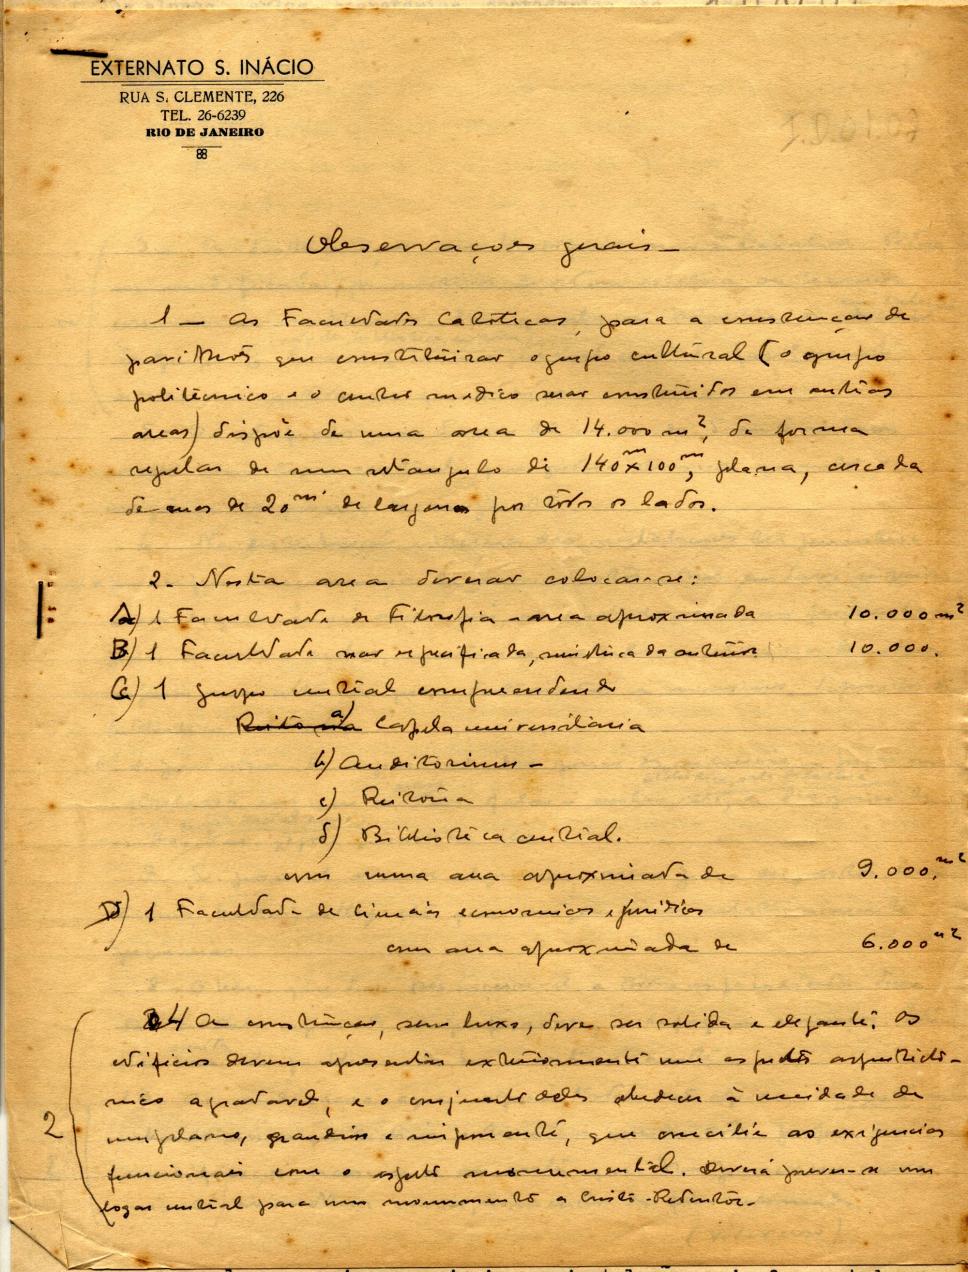 EXTERNATO S. INÁCIO
RUA S. CLEMENTE, 226
TEL. 26-6239
RIO DE JANEIRO
Observações gerais —
1 — As Faculdades Catolicas, para a construção de
pavilhões que constituirão o grupo cultural (o grupo
politécnico e o centro medico serão construidos em outras
areas) dispõe de uma area de 14.000 m², de forma
regular de um retangulo de 140m x 100m, plana, cercada
de ruas de 20m de largura por todos os lados.
2. Nesta area deverão colocar-se:
A) 1 Faculdade de Filosofia - area aproximada 10.000 m²
B) 1 Faculdade não especificada, simetrica da anterior 10.000.
C) 1 grupo central compreendendo
Reitoria a) Capela universitaria
b) Auditorium —
c) Reitoria
d) Biblioteca central.
com uma area aproximada de 9.000. m²
D) 1 Faculdade de Ciencias economicas e juridicas
com area aproximada de 6.000 m²
2
4 A construção, sem luxo, deve ser solida e elegante. Os
edificios devem apresentar exteriormente um aspeto arquitetô-
nico agradavel, e o conjunto deles obedecer à unidade de
um plano, grandioso e imponente, que concilie as exigencias
funcionais com o aspeto monumental. Deverá prever-se um
logar central para um monumento a Cristo-Redentor.